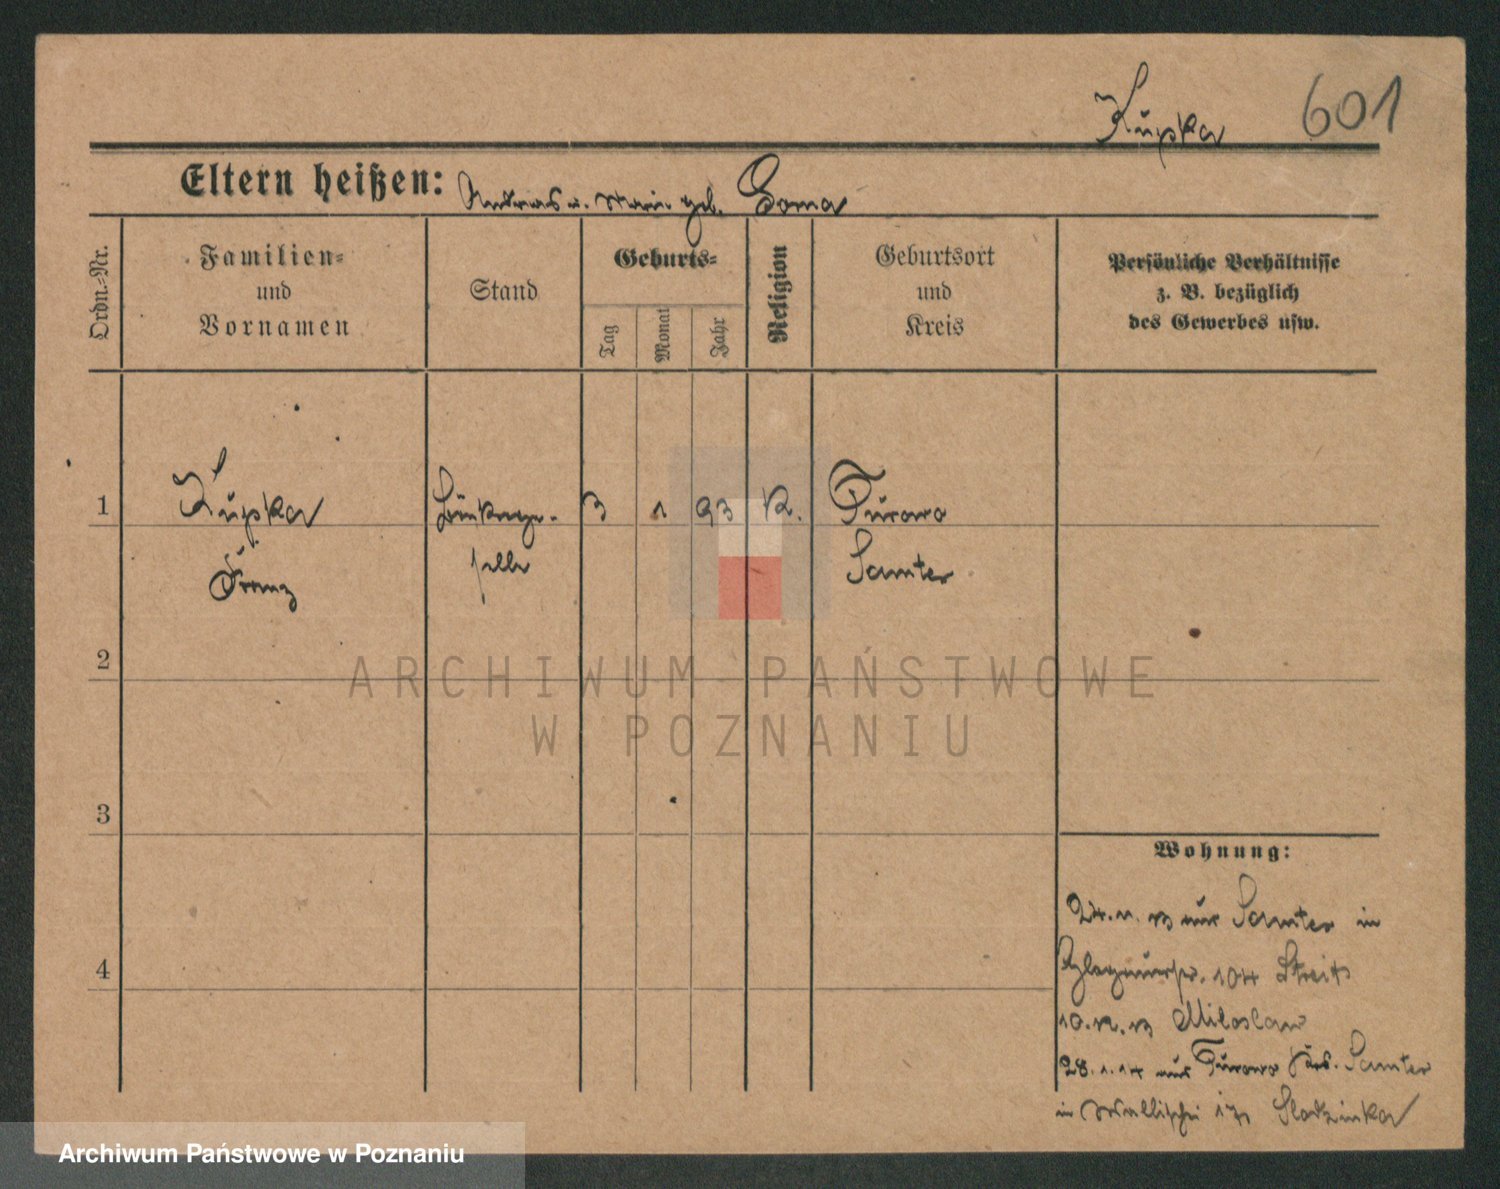 Kupka 601
Eltern heißen: Andreas u. Marie geb. Soma
Ordn.-Nr.
Familien-
und
Vornamen
Stand
Geburts-
Tag
Monat
Jahr
Religion
Geburtsort
und
Kreis
Persönliche Verhältnisse
z. B. bezüglich
des Gewerbes usw.
1 Kupka 3 1 93 K. Turowo
Franz Samter
2
3
4
Wohnung:
24. 11. 13 aus Samter in
104 Streit
10. 12. 13 Miloslaw
28. 1. 14 aus Turowo Krs. Samter
in Wallischei
ARCHIWUM PAŃSTWOWE
W POZNANIU
Archiwum Państwowe w Poznaniu